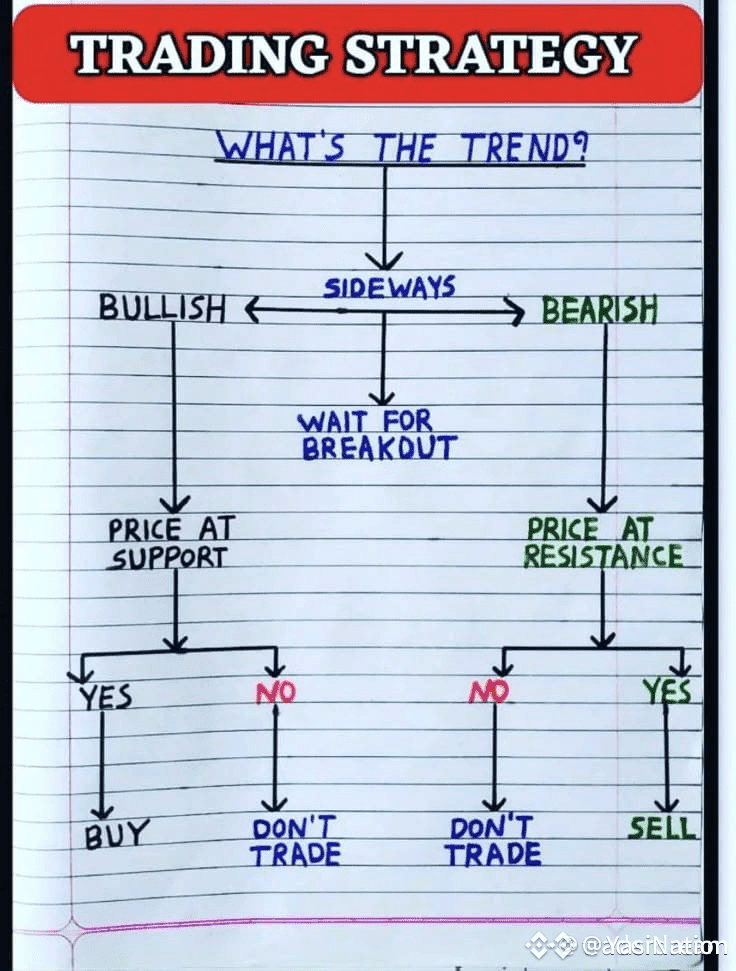 TRADING STRATEGY
WHAT'S THE TREND?
SIDEWAYS
BULLISH
BEARISH
WAIT FOR
BREAKOUT
PRICE AT
SUPPORT
PRICE AT
RESISTANCE
YES
NO
NO
YES
BUY
DON'T
TRADE
DON'T
TRADE
SELL